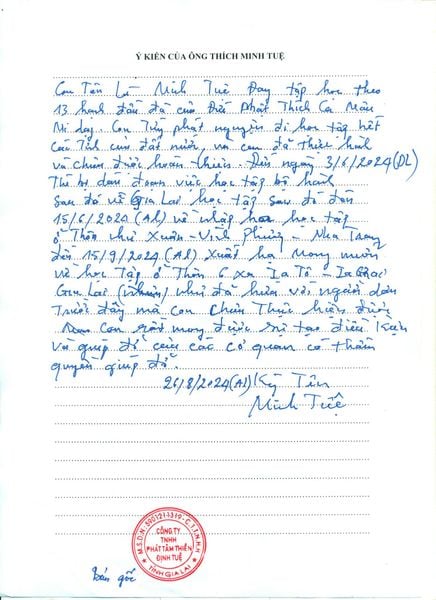 Ý KIẾN CỦA ÔNG THÍCH MINH TUỆ
Con Tên Là Minh Tuệ Đay tập học theo
13 hạnh đầu đà của Đức Phật Thích Ca Mâu
Ni dạy. Con Tùy phát nguyện đi học tập hết
Các Tỉnh của đất nước, và con đã thực hành
và chưa được hoàn thiện. Đến ngày 3/6/2024 (DL)
Thì bị dán đoạn việc học tập bộ hành
sau đó về Gia Lai học tập sau đó đến
15/6/2020 (AL) về nhập hạ học tập
ở Thôn như Xuân - Vĩnh Phương - Nha Trang
đến 15/9/2024 (AL) Xuất hạ Mong muốn
về học Tập ở Thôn 6 xa Ia Tô - Ia Grai
Gia Lai như đã hiện với người dân
Trước đây mà con Chưa Thực hiện được
Con rất mong được sự tạo điều kiện
và giúp đỡ của các cơ quan có thẩm
quyền giúp đỡ.
26/8/2024 (Al) Ký Tên
Minh Tuệ
M.S.D.N: 5901213319 - C.T.T.N.H.H
CÔNG TY
TNHH
PHÁT TÂM THIỀN
ĐỊNH TUỆ
TỈNH GIA LAI
Bản gốc